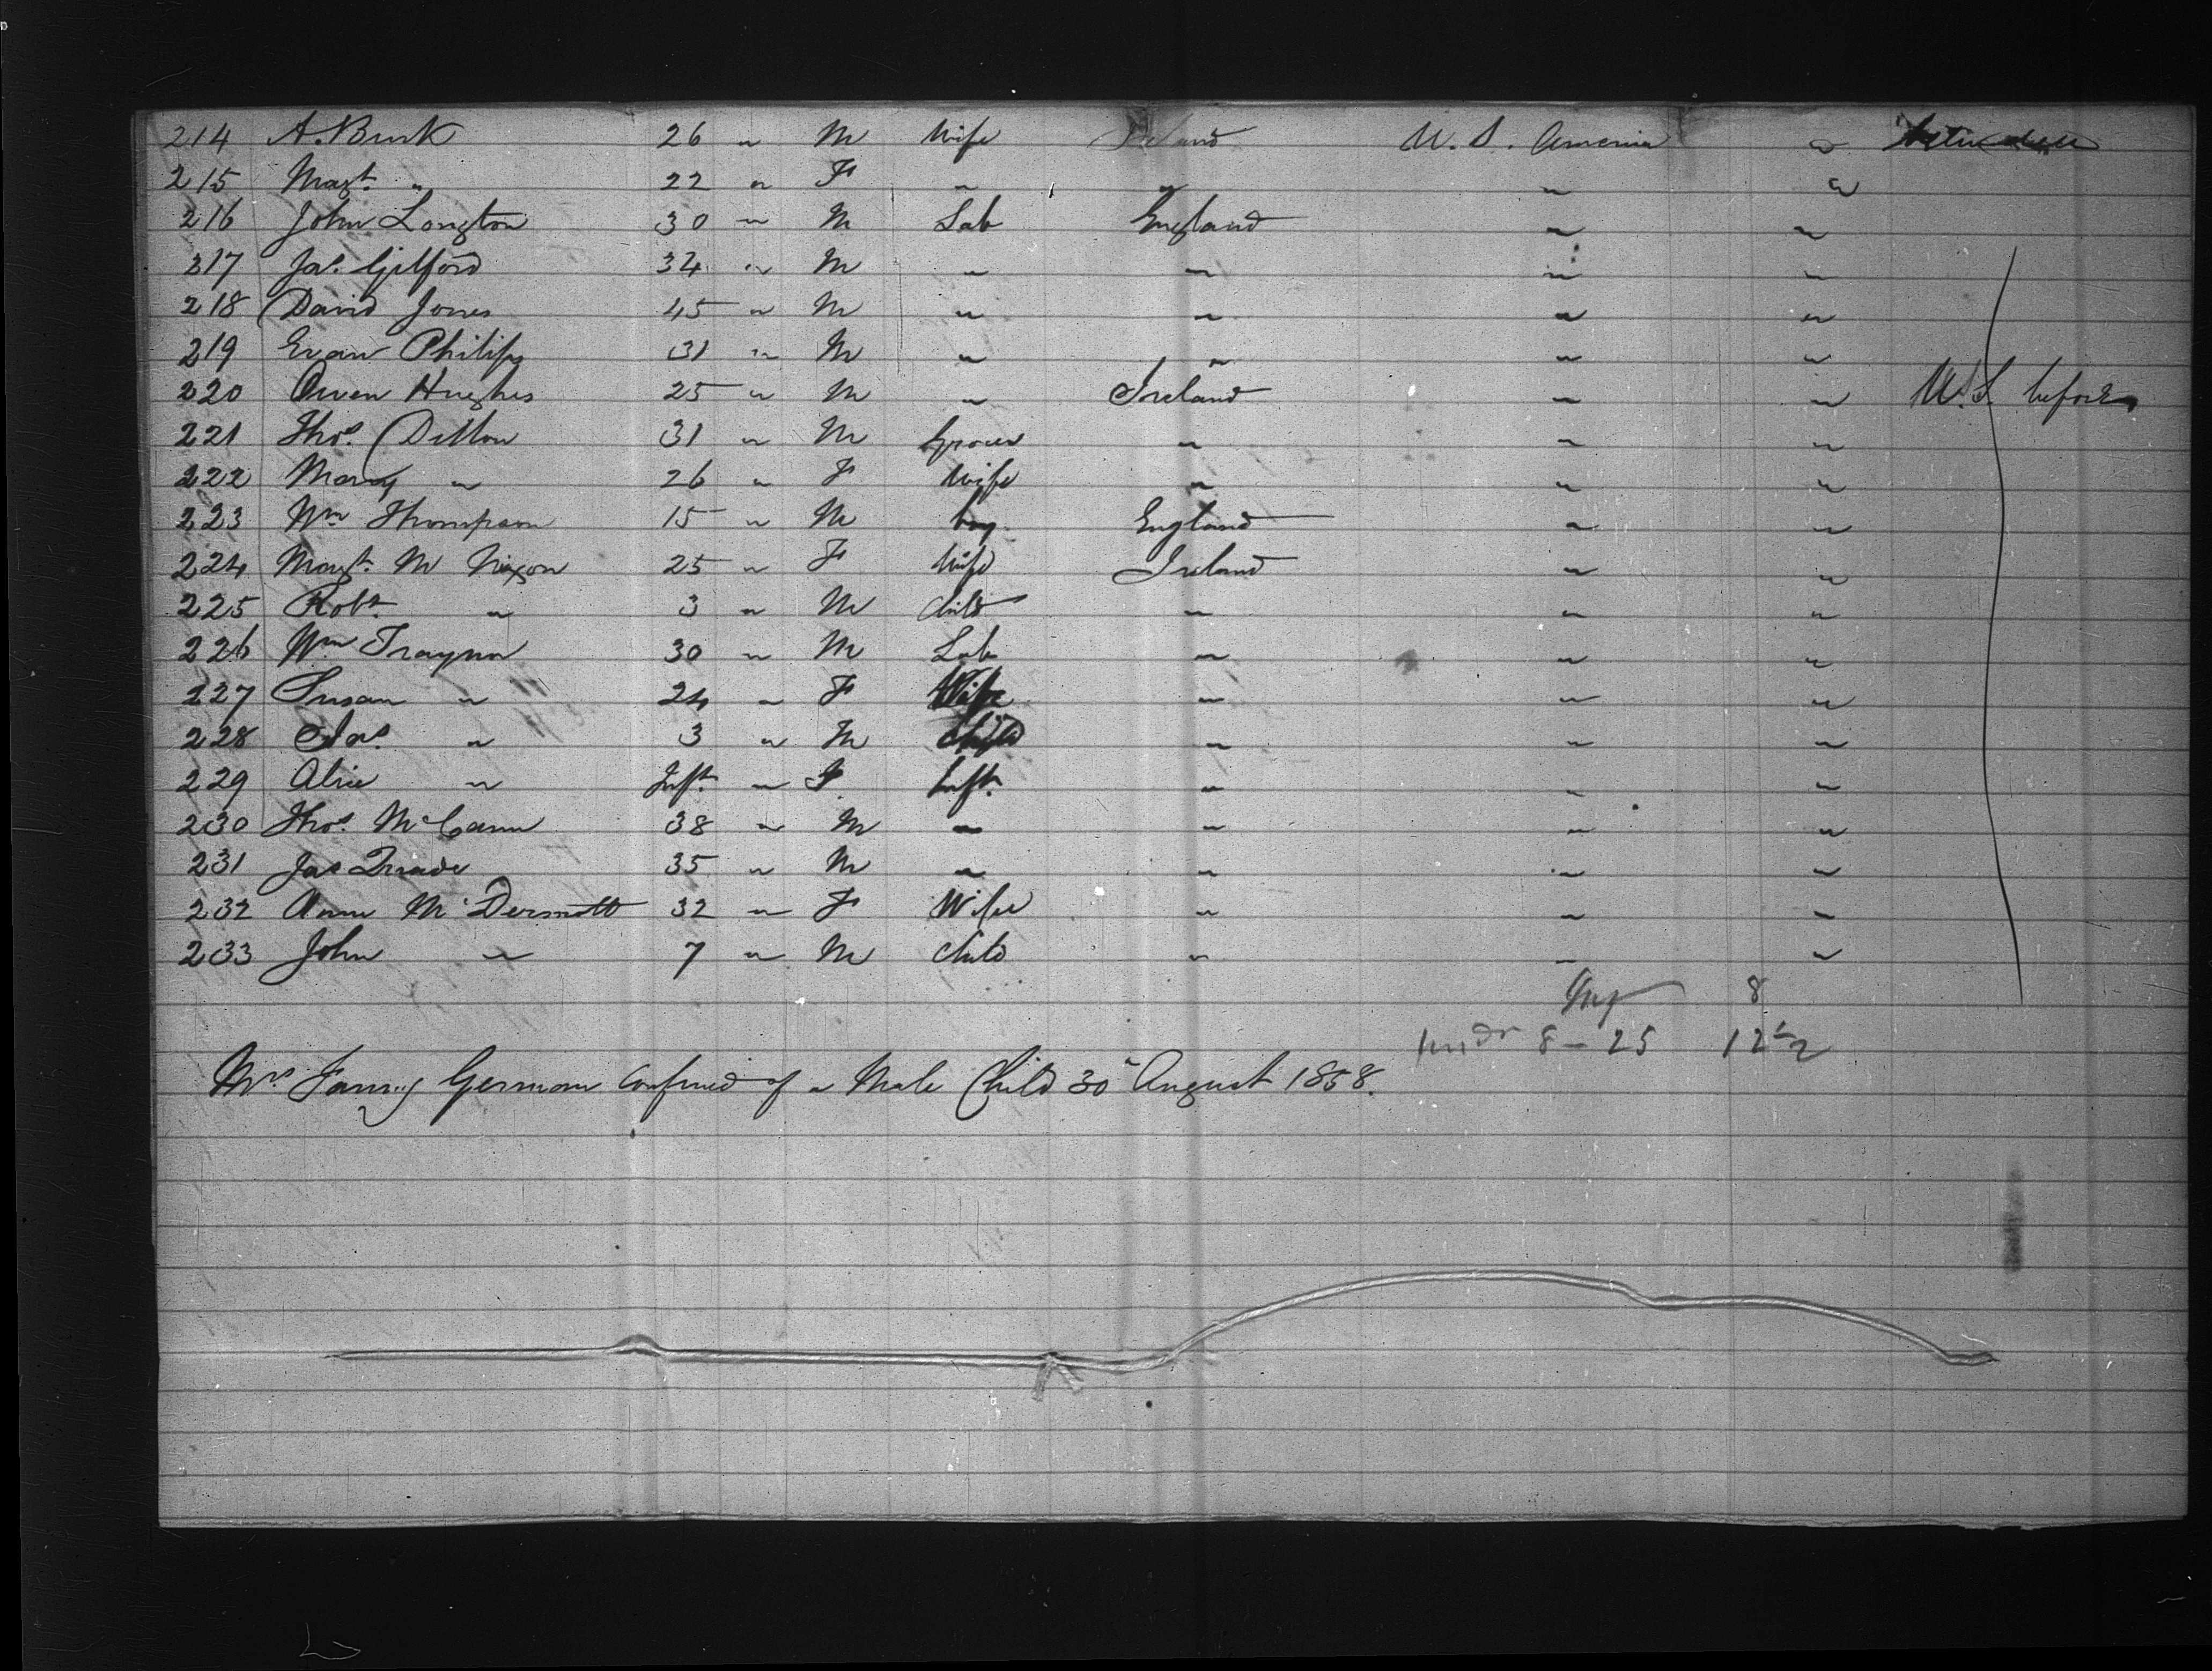 214 A. Burk 26 " M Wife Ireland U. S. America "
215 Magt. " 22 " F " " " "
216 John Longton 30 " M Lab England " "
317 Jas. Gilford 34 " M " " " "
218 David Jones 45 " M " " " "
219 Evan Philips 31 " M " " " "
220 Owen Hughes 25 " M " Ireland " " U.S. before
221 Thos. Dillon 31 " M Grocer " " "
222 Mary " 26 " F Wife " " "
223 Wm Thompson 15 " M boy England " "
224 Margt. M Nixon 25 " F Wife Ireland " "
225 Robt " 3 " M Child " " "
226 Wm Traynor 30 " M Lab " " "
227 Susan " 24 " F Wife " " "
228 Jas. " 3 " M Child " " "
229 Alice " Inft. " F Inft. " " "
230 Thos. McCann 38 " M " " " "
231 Jas Quade 35 " M " " " "
232 Anne McDermott 32 " F Wife " " "
233 John " 7 " M Child " " "
8
8 - 25 12
Mrs Fanny German Confined of a Male Child 30 August 1858.